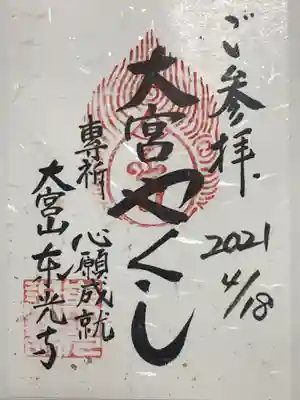 ご参拝
2021
4/18
大宮やくし
専祈
心願成就
大宮山東光寺